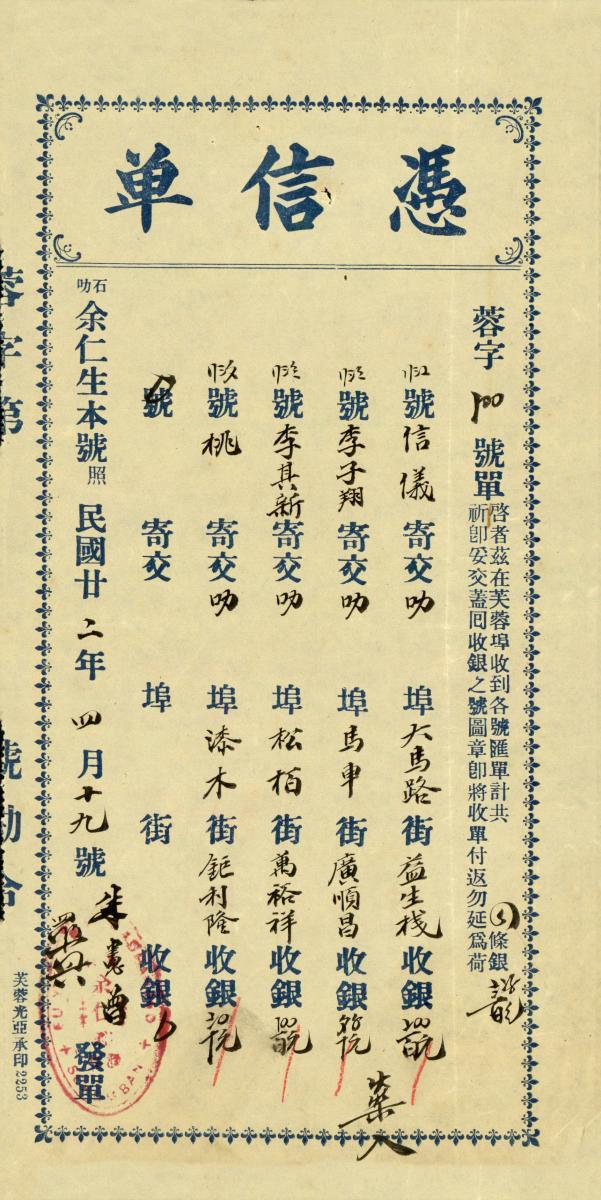 憑信单
蓉字 號單
啓者茲在芙蓉埠收到各號匯單計共 條銀
祈即妥交蓋囘收銀之號圖章即將收單付返勿延爲荷
號信儀寄交叻埠大馬路街益生棧收銀
號李子翔寄交叻埠馬車街廣順昌收銀
號李其新寄交叻埠松柏街萬裕祥收銀
號桃寄交叻埠漆木街鉅利隆收銀
號 寄交 埠 街 收銀
石叻 余仁生本號照 民國廿二年四月十九號 發單
芙蓉光亞承印 2253
蓉字第 號